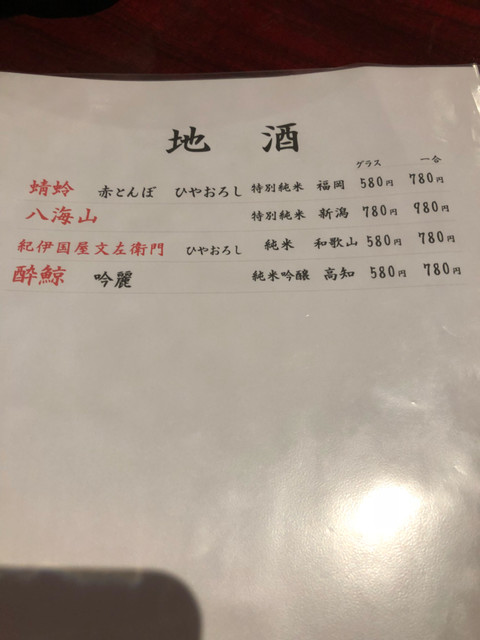 地 酒
グラス 一合
蜻蛉 赤とんぼ ひやおろし 特別純米 福岡 580円 780円
八海山 特別純米 新潟 780円 980円
紀伊国屋文左衛門 ひやおろし 純米 和歌山 580円 780円
酔鯨 吟麗 純米吟醸 高知 580円 780円